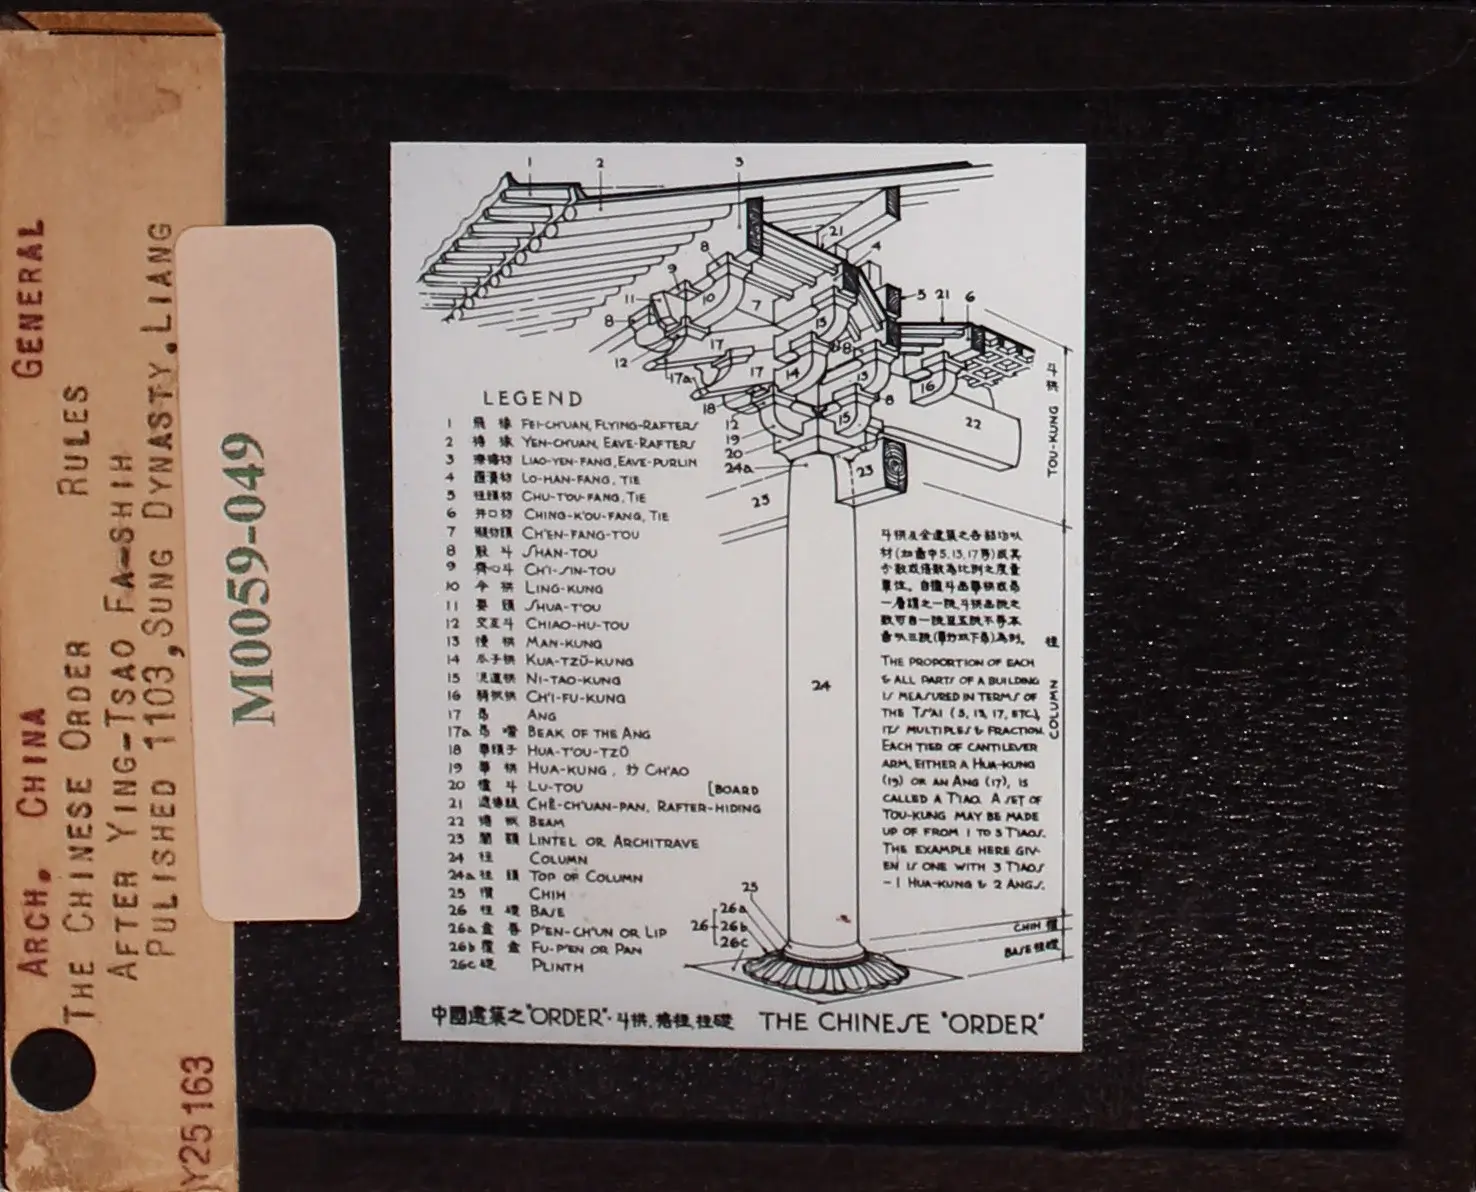 ARCH. CHINA GENERAL
THE CHINESE ORDER RULES
AFTER YING-TSAO FA-SHIH
PULISHED 1103, SUNG DYNASTY. LIANG
Y25163
M0059-049
1 2 3
8 21 4
9 5 21 6
11 10 7
8 13
17 8
12 17 14 13 16
17a
18 8
12 15 22
19
20
24a 23
25
斗栱
TOU-KUNG
LEGEND
1 飛椽 FEI-CH'UAN, FLYING-RAFTERS
2 檐椽 YEN-CH'UAN, EAVE-RAFTERS
3 橑檐枋 LIAO-YEN-FANG, EAVE-PURLIN
4 羅漢枋 LO-HAN-FANG, TIE
5 柱頭枋 CHU-T'OU-FANG, TIE
6 井口枋 CHING-K'OU-FANG, TIE
7 襯枋頭 CH'EN-FANG-T'OU
8 散斗 SHAN-TOU
9 齊心斗 CH'I-SIN-TOU
10 令栱 LING-KUNG
11 耍頭 SHUA-T'OU
12 交互斗 CHIAO-HU-TOU
13 慢栱 MAN-KUNG
14 瓜子栱 KUA-TZŬ-KUNG
15 泥道栱 NI-TAO-KUNG
16 騎栿栱 CH'I-FU-KUNG
17 昂 ANG
17a 昂嘴 BEAK OF THE ANG
18 華頭子 HUA-T'OU-TZŬ
19 華栱 HUA-KUNG, 抄 CH'AO
20 櫨斗 LU-TOU [BOARD
21 遮椽版 CHÊ-CH'UAN-PAN, RAFTER-HIDING
22 栿 BEAM
23 闌額 LINTEL OR ARCHITRAVE
24 柱 COLUMN
24a 柱頭 TOP OF COLUMN
25 櫍 CHIH
26 柱礎 BASE
26a 盆唇 P'EN-CH'UN OR LIP
26b 覆盆 FU-P'EN OR PAN
26c 礎 PLINTH
斗栱及全建築之各部均以
材(如圖中5.13.17等)或其
分數或倍數為比例之度量
單位。自櫨斗出華栱或昂
一層謂之一跳斗栱出跳之
數可自一跳至五跳不等本
圖以三跳(單抄双下昂)為例。
THE PROPORTION OF EACH
& ALL PARTS OF A BUILDING
IS MEASURED IN TERMS OF
THE TS'AI (5, 13, 17, ETC.),
ITS MULTIPLES & FRACTION.
EACH TIER OF CANTILEVER
ARM, EITHER A HUA-KUNG
(19) OR AN ANG (17), IS
CALLED A T'IAO. A SET OF
TOU-KUNG MAY BE MADE
UP OF FROM 1 TO 5 T'IAOS.
THE EXAMPLE HERE GIV-
EN IS ONE WITH 3 T'IAOS
- 1 HUA-KUNG & 2 ANGS.
24
柱
COLUMN
25
26 26a
26b
26c
CHIH 櫍
BASE 柱礎
中國建築之"ORDER"·斗栱,檐柱,柱礎 THE CHINESE "ORDER"